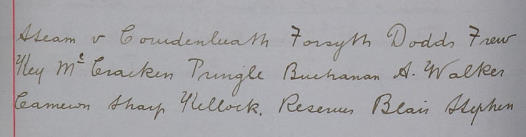 Team v Cowdenbeath Forsyth Dodds Frew
Key McCracken Pringle Buchanan A. Walker
Cameron Sharp Kellock. Reserves Blair Stephen